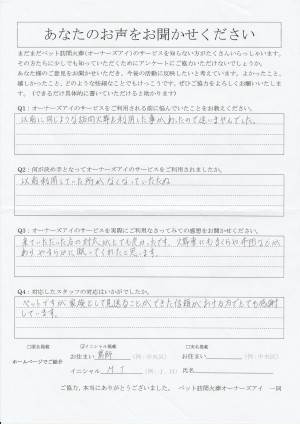 あなたのお声をお聞かせください
まだまだペット訪問火葬(オーナーズアイ)のサービスを知らない方がたくさんいらっしゃいます。
その方たちに少しでも知っていただくためにアンケートにご協力いただけないでしょうか。
あなた様のご意見をお聞かせいただき、今後の活動に反映したいと考えています。よかったこと、
嬉しかったこと、どのような些細なことでもけっこうです。ぜひご協力をよろしくお願いいたします。(できるだけ具体的に書いていただけると助かります)
Q1:オーナーズアイのサービスをご利用される前に悩んでいたことをお教えください。
以前に同じような訪問火葬を利用した事があったので迷いませんでした。
Q2:何が決め手となってオーナーズアイのサービスをご利用されましたか。
以前利用していた所がなくなっていたため
Q3:オーナーズアイのサービスを実際にご利用なさってみての感想をお聞かせください。
来ていただいた方の対応がとても良かったです。火葬車にもまくらや布団などが
ありやすらかに眠ってくれたと思います。
Q4:対応したスタッフの対応はいかがでしたか。
ペットですが家族として見送ることができた信頼がおける方でとても感謝
しています。
□匿名掲載 ☑イニシャル掲載 □実名掲載
ホームページでご紹介
お住まい 葛飾 (例:中央区) お住まい (例:中央区)
イニシャル M.T (例:J.H) 氏名
ご協力、本当にありがとうございました。 ペット訪問火葬オーナーズアイ 一同